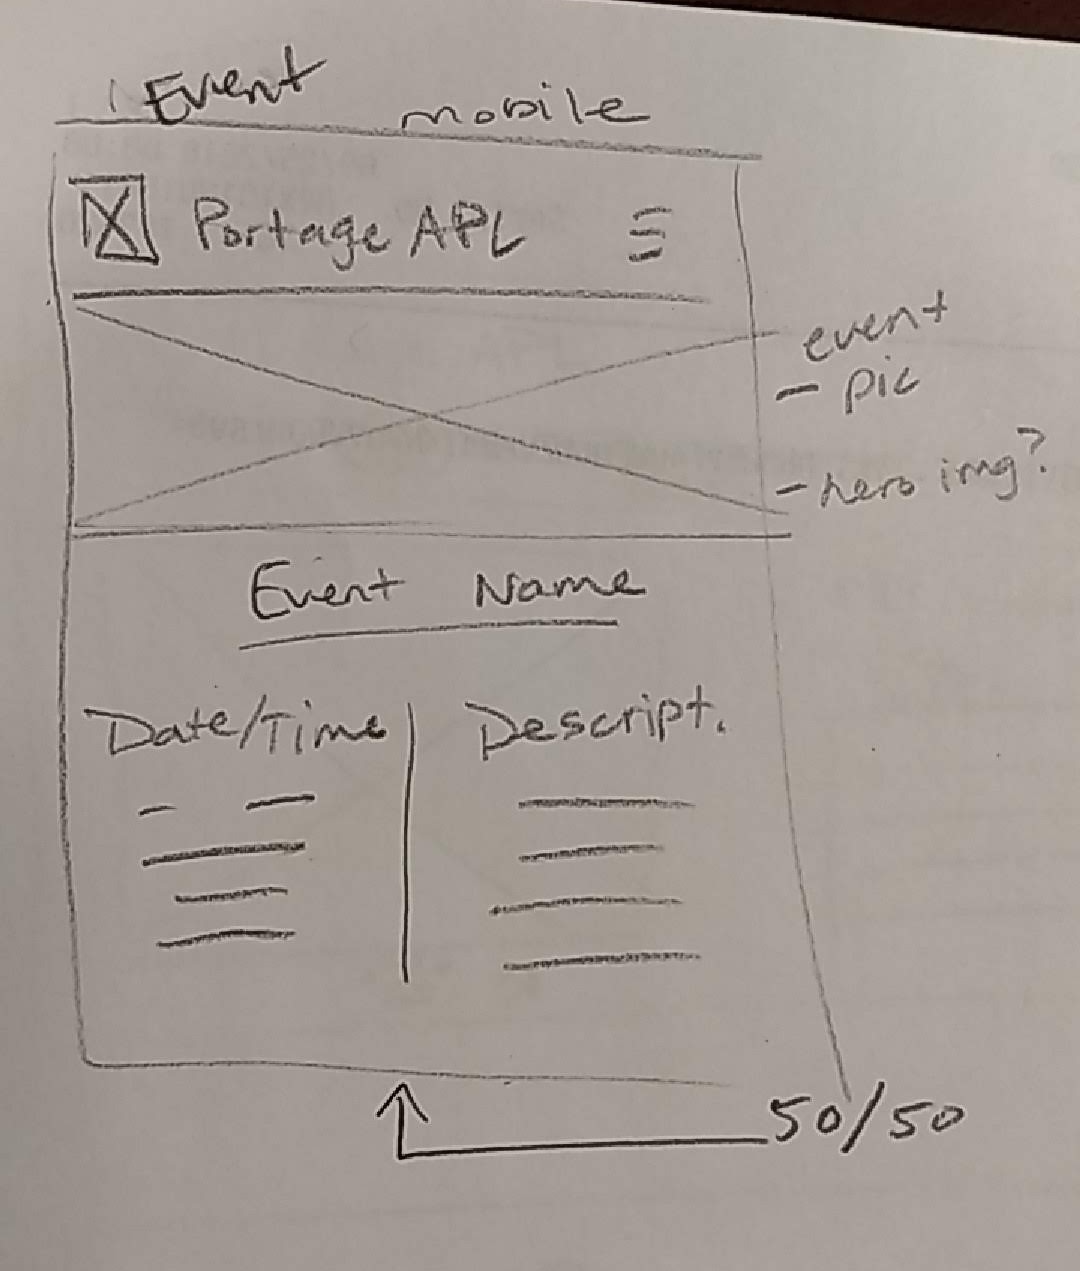 Event mobile
Portage APL
event
- pic
- hero img?
Event Name
Date/Time
Descript.
50/50